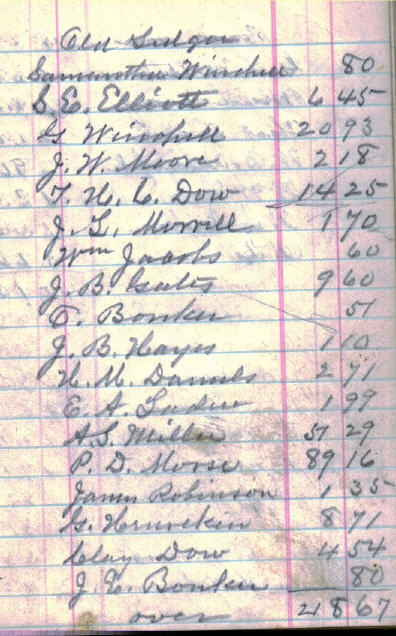 Old Ledger
Samantha Winchell 80
S. E. Elliott 6 45
G. Winchell 20 93
J. W. Moore 2 18
T. H. C. Dow 14 25
J. L. Morrill 1 70
Wm Jacobs 60
J. B. Gates 9 60
E. Bonker 51
J. B. Hayes 1 10
H. M. Daniels 2 71
E. A. Ladue 1 99
A. S. Miller 51 29
P. D. Morse 89 16
James Robinson 1 35
G. 8 71
Clay Dow 4 54
J. E. Bonker 80
over 218 67